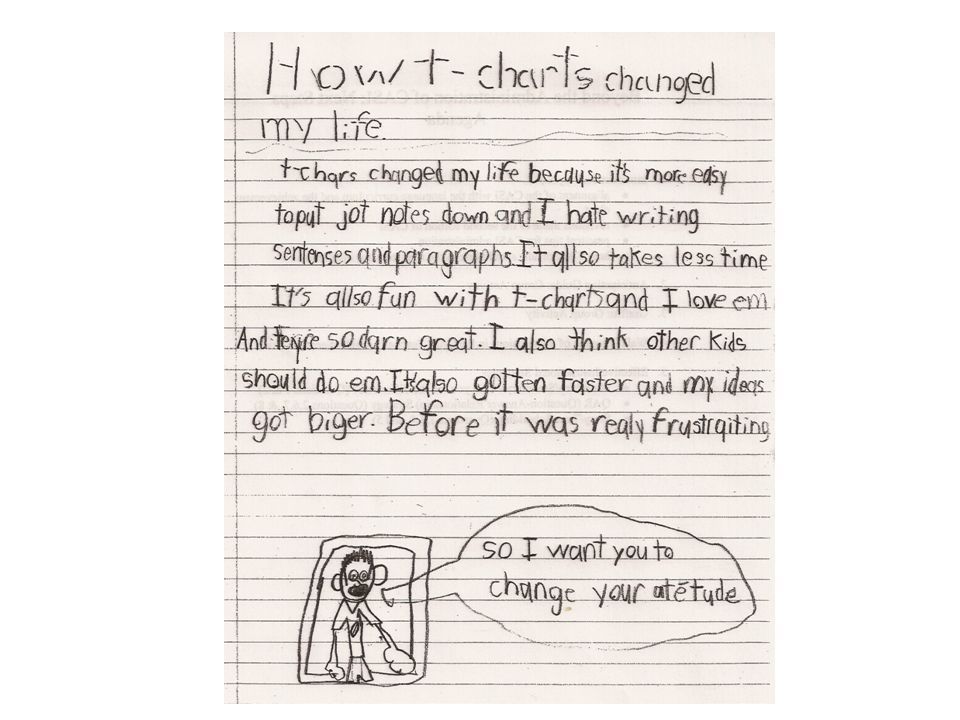 How t-charts changed
my life.
t-chars changed my life because it's more easy
to put jot notes down and I hate writing
sentenses and paragraphs. It allso takes less time
It's allso fun with t-charts and I love em
And they're so darn great. I also think other kids
should do em. It's also gotten faster and my ideas
got biger. Before it was realy frustraiting
so I want you to
change your atetude